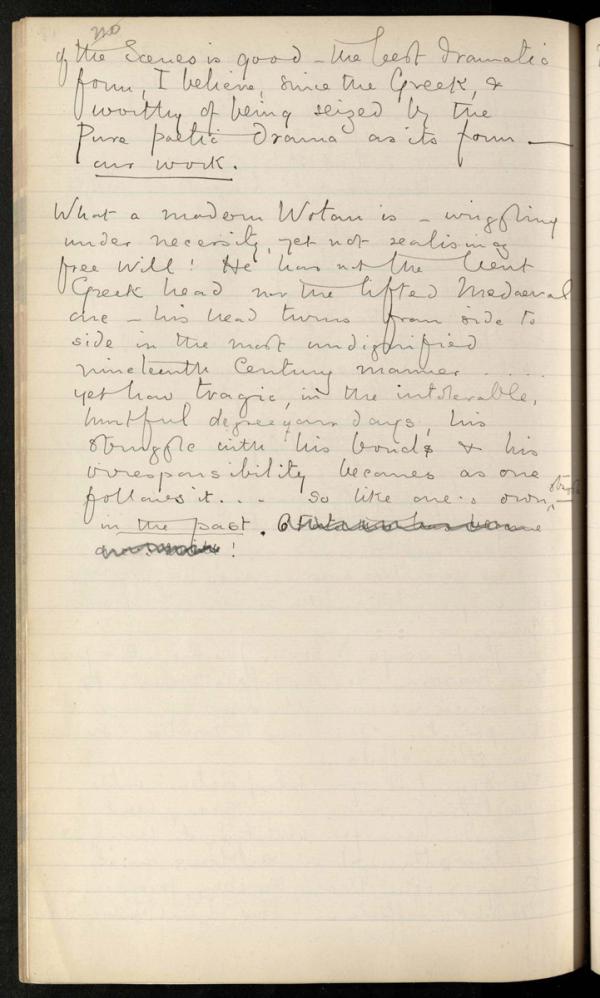 of the Scenes is good – the best dramatic
form, I believe, since the Greek, &
worthy of being seized by the
Pure poetic drama as its form —
our work.
What a modern Wotan is – wriggling
under necessity, yet not realising
free will! He has not the bent
Greek head nor the lifted Mediaeval
one – his head turns from side to
side in the most undignified
nineteenth Century manner .....
yet how tragic, in the intolerable,
hurtful days, his
struggle with his bonds & his
irresponsibility becomes as one
follows it... So like one's own,
in the past.
!